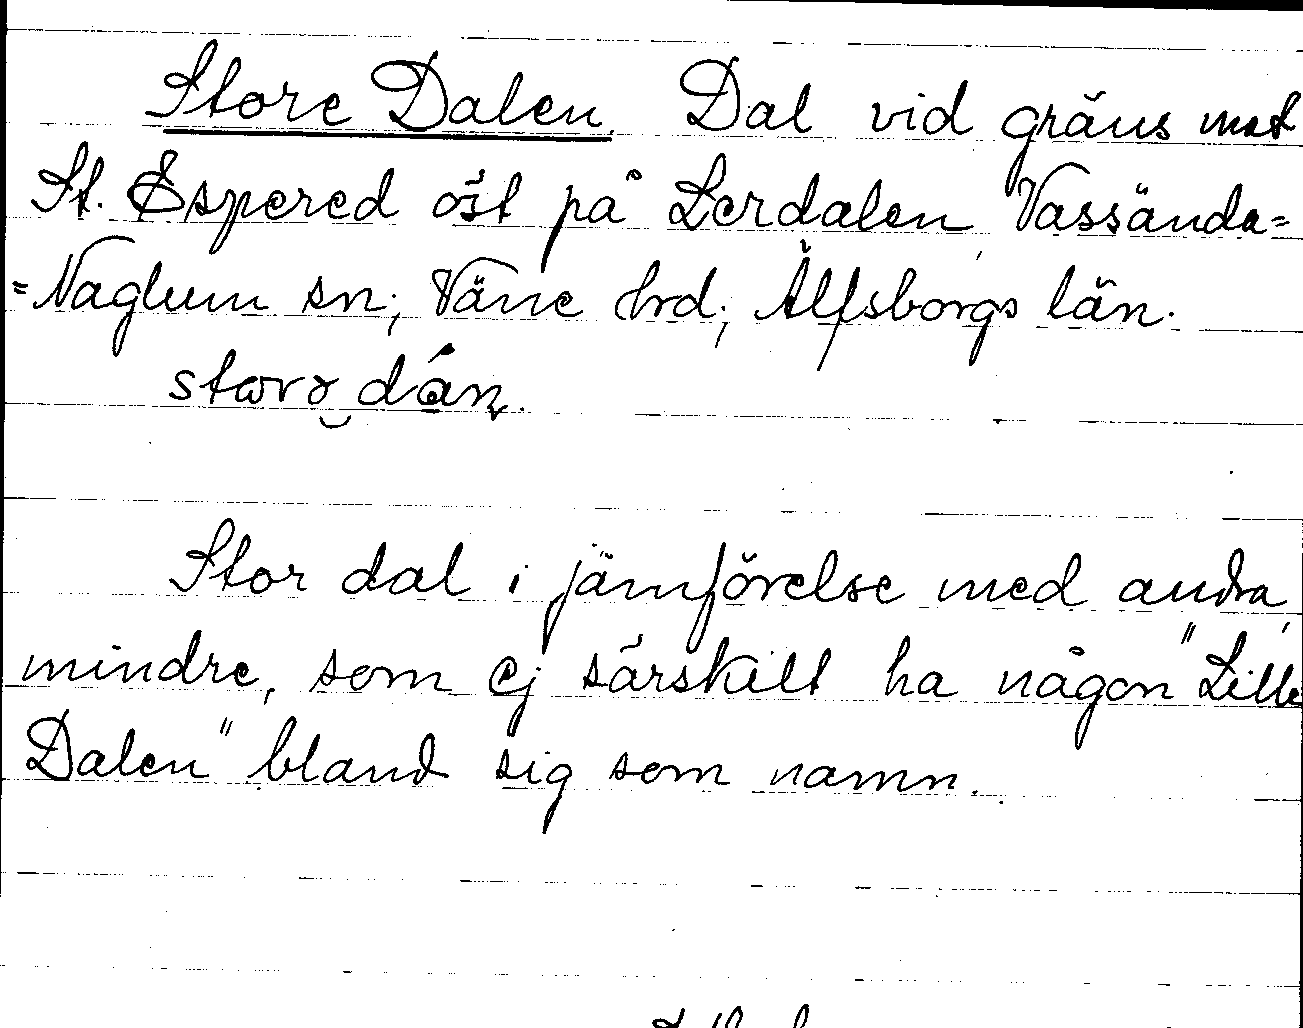 Store Dalen. Dal vid gräns mot
St. Espered öst på Lerdalen, Vassända=
=Naglum sn; Väne hrd; Älfsborgs län.
Stor dal i jämförelse med andra,
mindre, som ej särskilt ha någon "Lille
Dalen" bland sig som namn.